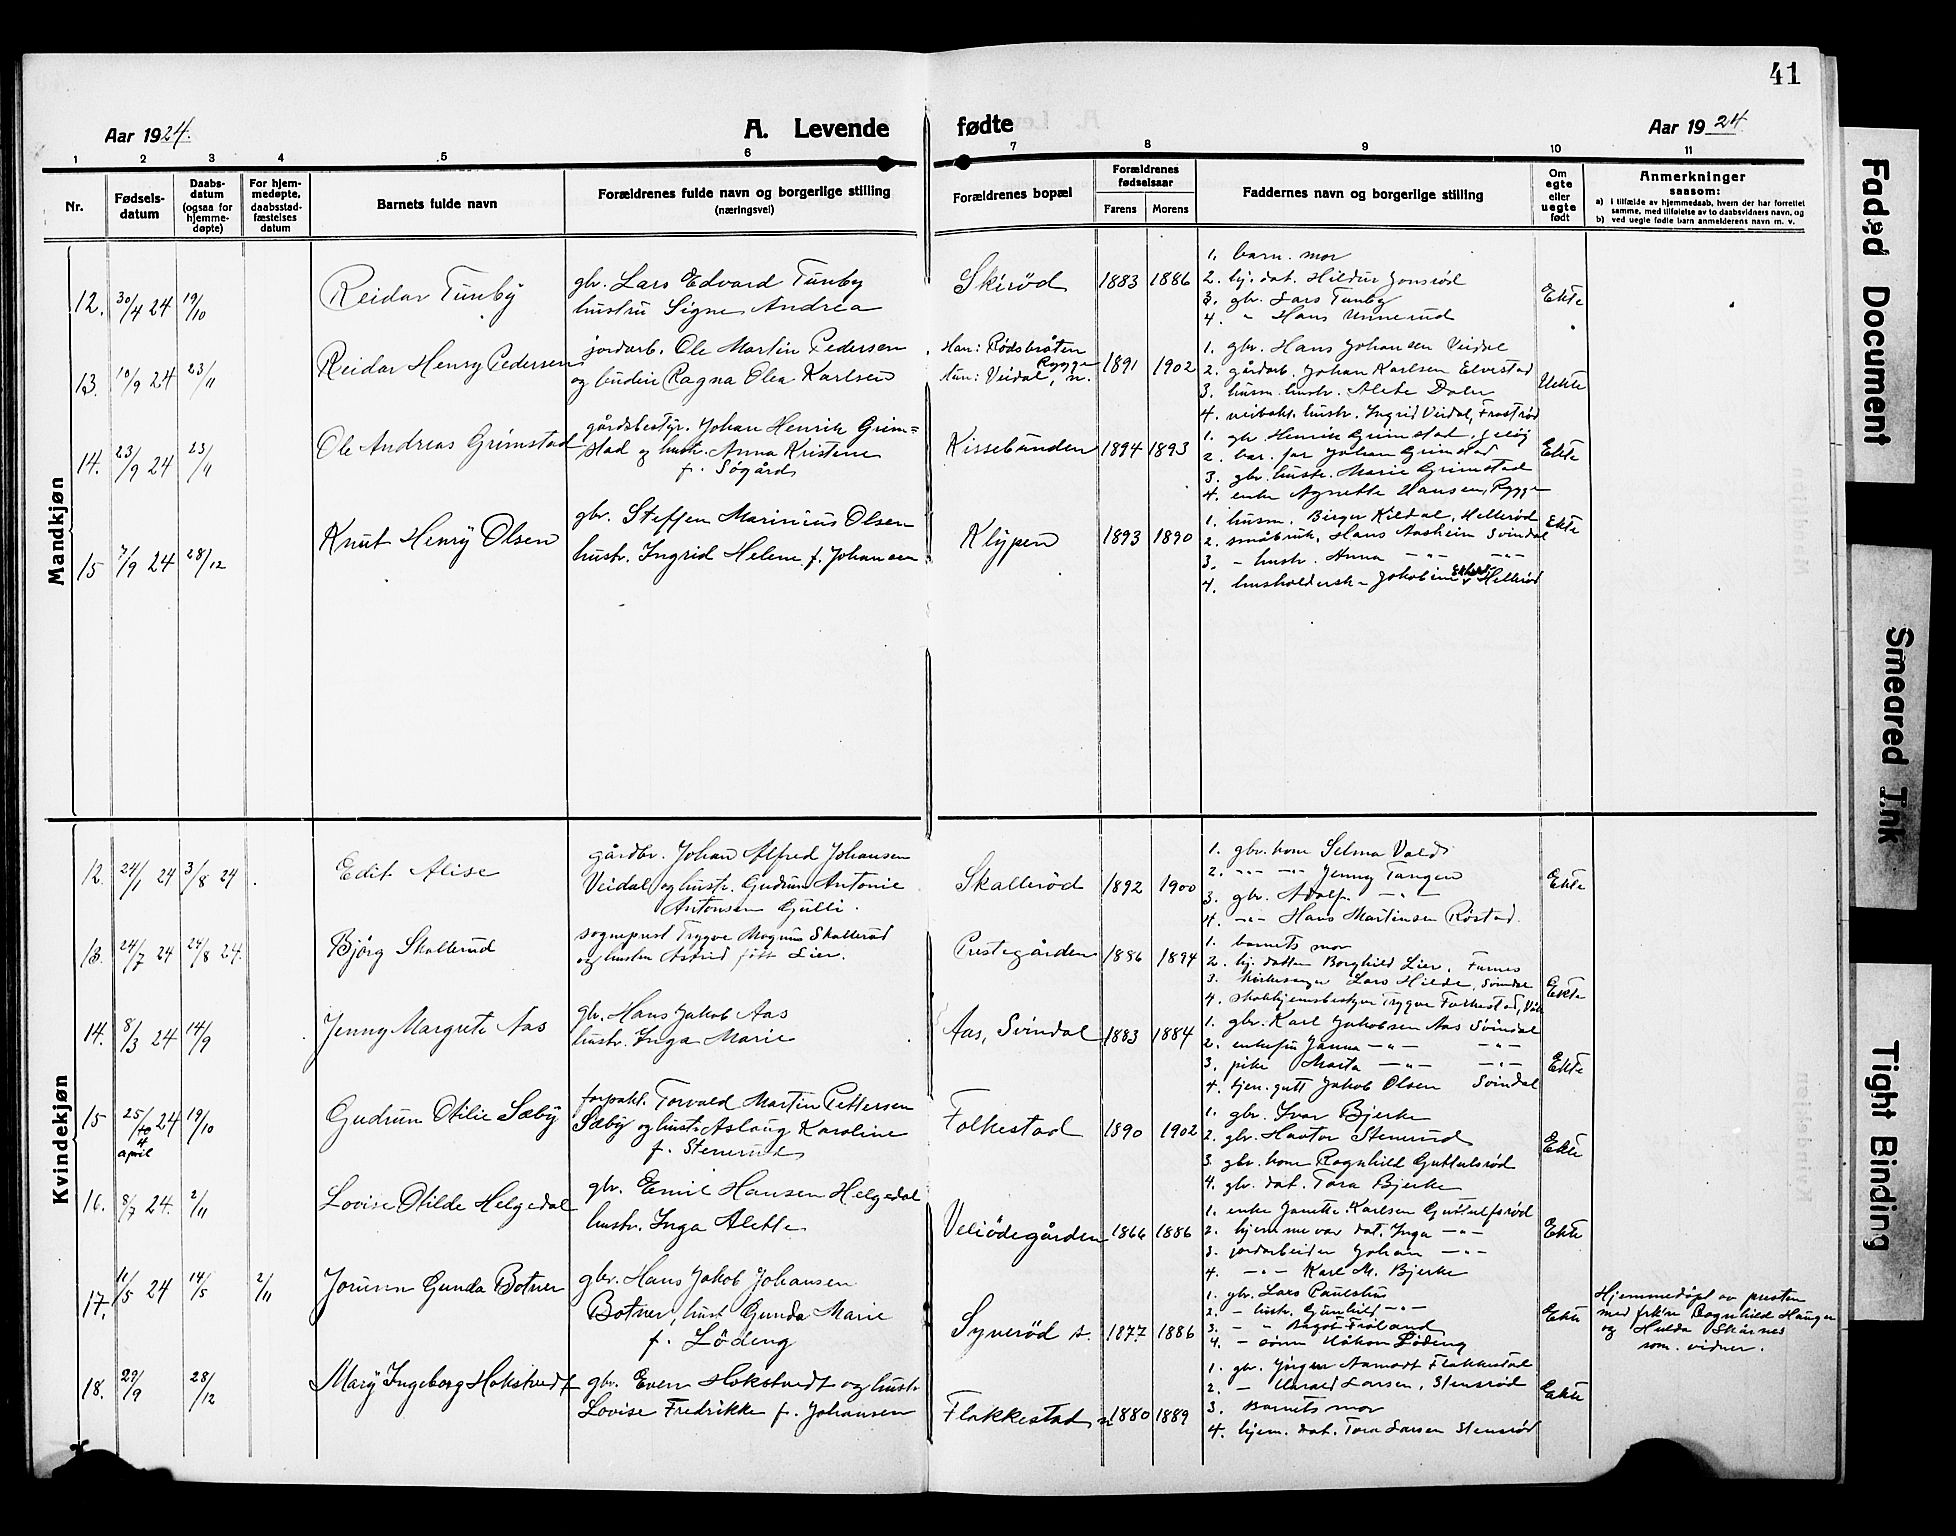 41
Aar 1924.
A. Levende fødte
Aar 1924
1 2 3 4 5 6 7 8 9 10 11
Nr.
Fødsels-
datum
Daabs-
datum
(ogsaa for
hjemme-
døpte)
For hjem-
medøpte,
daabsstad-
fæstelses
datum
Barnets fulde navn
Forældrenes fulde navn og borgerlige stilling
(næringsvei)
Forældrenes bopæl
Forældrenes
fødselsaar
Farens Morens
Faddernes navn og borgerlige stilling
Om
egte
eller
uegte
født
Anmerkninger
saasom:
a) i tilfælde av hjemmedaab, hvem der har forrettet
samme, med tilføielse av to daabsvidners navn, og
b) ved uegte fødte barn anmelderens navn m. v.
Mandkjøn
12. 30/4 24 19/10
Reidar Tunby
gbr. Lars Edvard Tunby
hustru Signe Andrea
Skirød 1883 1886
1. barn. mor
2. hj. dat. Hildur Jonsrød
3. gbr. Lars Tunby
4. " Hans Unnerud
Ekte
13. 10/9 24 23/11
Reidar Henry Pedersen
jordarb. Ole Martin Pedersen
og budeie Ragna Olea Karlsen
Han: Rødsbråten
Rygge
Hun: Veidal, n.
1891 1902
1. gbr. Hans Johansen Veidal
2. gårdarb. Johan Karlsen Elvestad
3. husm. hustr. Alete Dalen
4. hustr. Ingrid Veidal, Frostrød
Uekte
14. 23/9 24 23/11
Ole Andreas Grimstad
gårdsbestyr. Johan Henrik Grim=
stad og hustr. Anna Kristine
f. Søgård
Kissebunden 1894 1893
1. gbr Henrik Grimstad, Jeløy
2. bar. far Johan Grimstad
3. gbr. hustr. Marie Grimstad
4. enke Agnette Hansen, Rygge
Ekte
15 7/9 24 28/12
Knut Henry Olsen
gbr. Steffen Marinius Olsen
hustr. Ingrid Helene f. Johansen
Klypen 1893 1890
1. husm. Birger Kildal, Hellerød
2. småbruk. Hans Aasheim Svindal
3. - hustr. Anna -"- -"-
4. husholdersk- Jakobine Hellerød
Ekte
Kvindekjøn
12. 24/1 24 3/8 24
Edit Alise
gårdbr. Johan Alfred Johansen
Veidal og hustr. Gudrun Antonie
Antonsen Gulli.
Skallerød 1892 1900
1. gbr. kone Selma Vold
2. -"- -"- Jenny Tangen
3. gbr. Adolf -"-
4. -"- Hans Martinsen Røstad.
Ekte
13. 24/7 24 24/8 24.
Bjørg Skallerud
sogneprest Trygve Magnus Skallerud
og hustru Astrid født Lier.
Prestegården 1886 1894
1. barnets mor
2. hj. datter Borghild Lier, Furnes
3. kirkesanger Lars Hilde, Svindal
4. skolehjemsbestyrer Trygve Folkestad, Vål
Ekte
14. 8/3 24 14/9
Jenny Margrete Aas
gbr. Hans Jakob Aas
hustr. Inga Marie
Aas, Svindal 1883 1884
1. gbr. Karl Jakobsen Aas Svindal
2. enkefru Janna -"- -"-
3. pike Marta -"- -"-
4. tjen. gutt Jakob Olsen Svindal
Ekte
15 25/4 24 19/10
april
Gudrun Otilie Sæby
forpakt. Torvald Martin Pettersen
Sæby og hustr. Aslaug Karoline
f. Stenerud
Folkestad 1890 1902
1. gbr. Ivar Bjerke
2. gbr. Havtor Stenerud
3. gbr. kone Ragnhild Guttulsrød
4. gbr. dat. Tora Bjerke
Ekte
16. 8/7 24. 2/11
Lovise Otilde Helgedal
gbr. Emil Hansen Helgedal
hustr. Inga Alette
Veliødegården 1866 1886
1. enke Janette Karlsen Guttulfsrød
2. hjemmevær. dat. Inga -"-
3. jordarbeider Johan -"-
4. -"- Karl M. Bjerke
Ekte
17. 11/5 24 14/5 2/11
Jorunn Gunda Botner
gbr. Hans Jakob Johansen
Botner, hust Gunda Marie
f. Lödeng
Synerød s. 1877 1886
1. gbr. Lars Paulshus
2. - hustr. Gunhild -"-
3. - " Dagot Frøland
4. - sønn Håkon Lödeng
Ekte
Hjemmedøpt av presten
med frk'n Ragnhild Hauger
og Hulda Skårnes
som vidner.
18. 29/9 28/12
Mary Ingeborg Hokstvedt
gbr. Even Hokstvedt og hustr
Lovise Fredrikke f. Johansen
Flakkestad n 1880 1889
1. gbr. Jørgen Aamodt Flakkestad
2. - Harald Larsen, Stensrød
3. Barnets mor
4. hjem. dat. Tora Larsen Stensrød
Ekte
Faded Document
Smeared Ink
Tight Binding